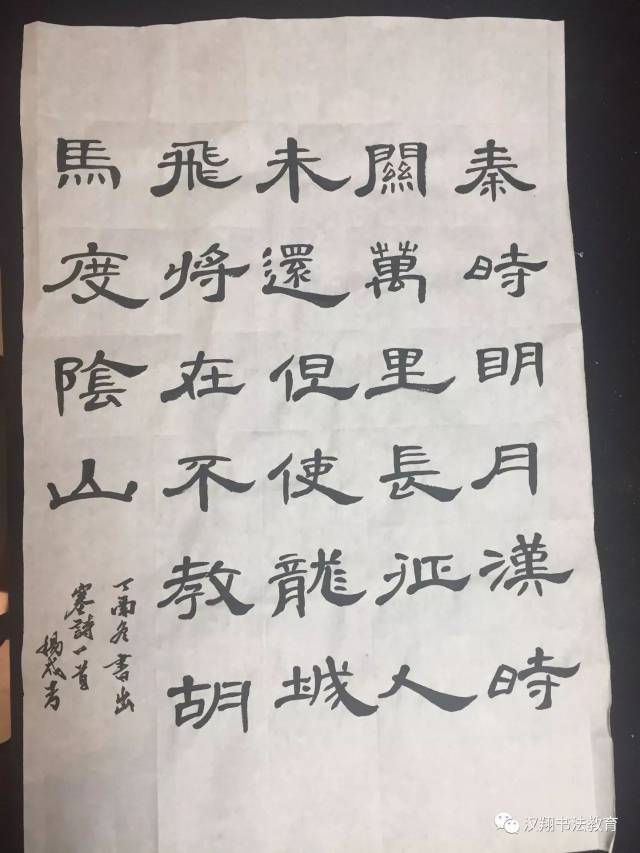 秦時明月漢時
關萬里長征人
未還但使龍城
飛將在不教胡
馬度陰山
書出
塞詩一首
汉翔书法教育